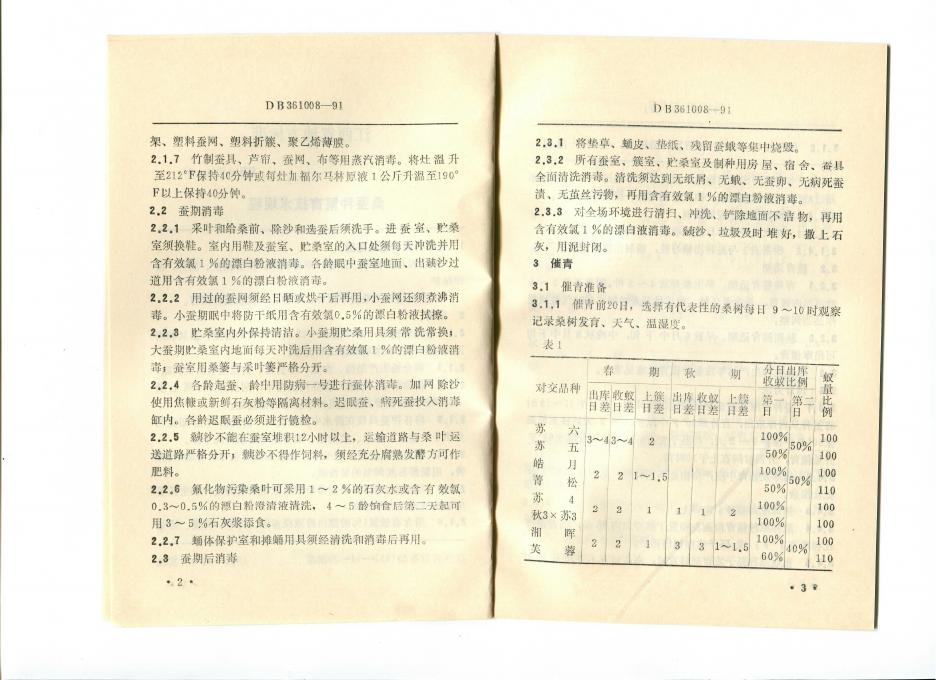 DB361008—91
架、塑料蚕网、塑料折簇、聚乙烯薄膜。
2.1.7 竹制蚕具、芦帘、蚕网、布等用蒸汽消毒。将灶温升
至212°F保持40分钟或每灶加福尔马林原液1公斤升温至190°
F以上保持40分钟。
2.2 蚕期消毒
2.2.1 采叶和给桑前、除沙和选蚕后须洗手。进蚕室、贮桑
室须换鞋。室内用鞋及蚕室、贮桑室的入口处须每天冲洗并用
含有效氯1%的漂白粉液消毒。各龄眠中蚕室地面、出蚕沙过
道用含有效氯1%的漂白粉液消毒。
2.2.2 用过的蚕网须经日晒或烘干后再用,小蚕网还须煮沸消
毒。小蚕期眠中将防干纸用含有效氯0.5%的漂白粉液拭擦。
2.2.3 贮桑室内外保持清洁。小蚕期贮桑用具须常洗常换;
大蚕期贮桑室内地面每天冲洗后用含有效氯1%的漂白粉液消
毒;蚕室用桑篓与采叶篓严格分开。
2.2.4 各龄起蚕、龄中用防病一号进行蚕体消毒。加网除沙
使用焦糠或新鲜石灰粉等隔离材料。迟眠蚕、病死蚕投入消毒
缸内。各龄迟眠蚕必须进行镜检。
2.2.5 蚕沙不能在蚕室堆积12小时以上,运输道路与桑叶运
送道路严格分开;蚕沙不得作饲料,须经充分腐熟发酵方可作
肥料。
2.2.6 氟化物污染桑叶可采用1～2%的石灰水或含有效氯
0.3～0.5%的漂白粉澄清液清洗,4～5龄饷食后第二天起可
用3～5%石灰浆添食。
2.2.7 蛹体保护室和摊蛹用具须经清洗和消毒后再用。
2.3 蚕期后消毒
·2·
DB361008—91
2.3.1 将垫草、蛹皮、垫纸、残留蚕蛾等集中烧毁。
2.3.2 所有蚕室、簇室、贮桑室及制种用房屋、宿舍、蚕具
全面清洗消毒。清洗须达到无纸屑、无蛾、无蚕卵、无病死蚕
渍、无茧丝污物,再用含有效氯1%的漂白粉液消毒。
2.3.3 对全场环境进行清扫、冲洗、铲除地面不洁物,再用
含有效氯1%的漂白液消毒。蚕沙、垃圾及时堆好,撒上石
灰,用泥封闭。
3 催青
3.1 催青准备
3.1.1 催青前20日,选择有代表性的桑树每日9～10时观察
记录桑树发育、天气、温湿度。
表1
对交品种 春期 秋期 分日出库收蚁比例 蚁量比例
出库日差 收蚁日差 上簇日差 出库日差 收蚁日差 上簇日差 第一日 第二日
苏六 3～4 3～4 2 100% 50% 100
苏五 50% 100
皓月 2 2 1～1.5 100% 50% 100
菁松 50% 110
苏4 2 2 1 1 1 2 100% 100
秋3×苏3 100% 100
湘晖 2 2 1 3 3 1～1.5 100% 40% 100
芙蓉 60% 110
·3·